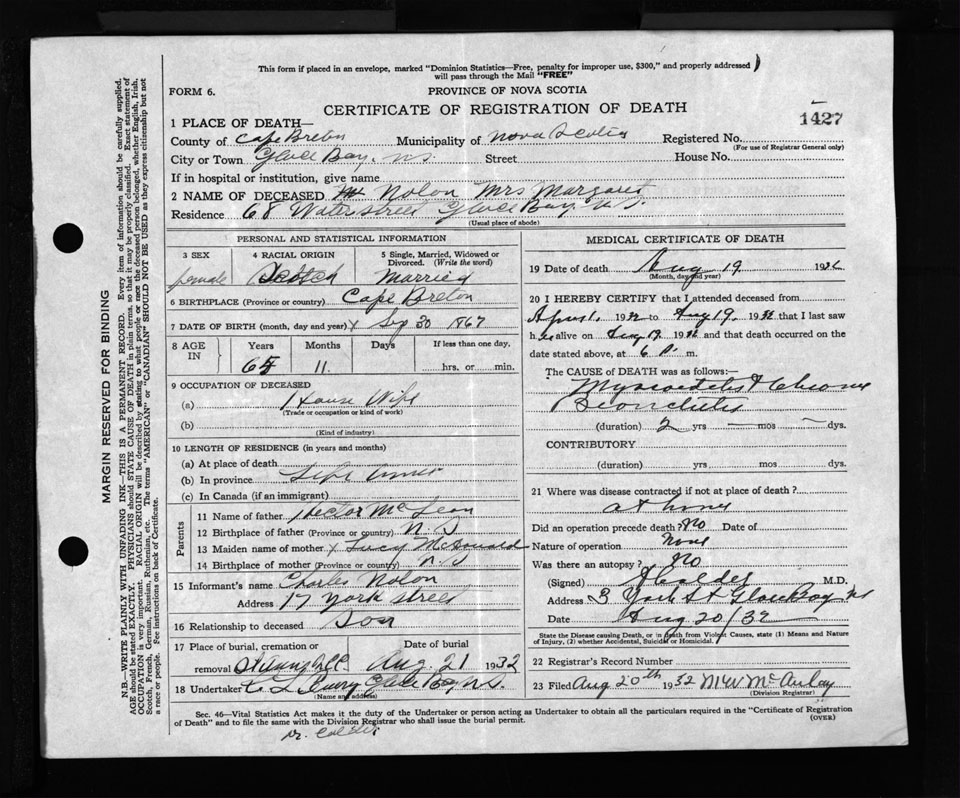 This form if placed in an envelope, marked "Dominion Statistics—Free, penalty for improper use, $300," and properly addressed
will pass through the Mail "FREE"
FORM 6.
PROVINCE OF NOVA SCOTIA
CERTIFICATE OF REGISTRATION OF DEATH
1427
1 PLACE OF DEATH—
County of Cape Breton Municipality of Nova Scotia Registered No.
(For use of Registrar General only)
City or Town Glace Bay, N.S. Street House No.
If in hospital or institution, give name
2 NAME OF DECEASED Nolon Mrs Margaret
Residence 68 Water street Glace Bay N.S.
(Usual place of abode)
PERSONAL AND STATISTICAL INFORMATION
3 SEX 4 RACIAL ORIGIN 5 Single, Married, Widowed or Divorced. (Write the word)
female Scotch Married
6 BIRTHPLACE (Province or country) Cape Breton
7 DATE OF BIRTH (month, day and year) x Sep 30 1867
8 AGE IN Years Months Days If less than one day.
11 hrs. or min.
9 OCCUPATION OF DECEASED
(a) House Wife
(Trade or occupation or kind of work)
(b)
(Kind of industry)
10 LENGTH OF RESIDENCE (in years and months)
(a) At place of death
(b) In province Life
(c) In Canada (if an immigrant)
Parents
11 Name of father Hector McLean
12 Birthplace of father (Province or country) N.S
13 Maiden name of mother x Lucy McDonald
14 Birthplace of mother (Province or country) N.S
15 Informant's name Charles Nolon
Address 17 York street
16 Relationship to deceased Son
17 Place of burial, cremation or Date of burial
removal Aug. 21 1932
18 Undertaker Glace Bay, N.S.
(Name and address)
MEDICAL CERTIFICATE OF DEATH
19 Date of death Aug 19 1932
(Month, day and year)
20 I HEREBY CERTIFY that I attended deceased from
April 1932 to Aug 19 1932 that I last saw
h er alive on Aug 19 1932 and that death occurred on the
date stated above, at 6 P. m.
The CAUSE of DEATH was as follows:—
Myocarditis & Chronic
(duration) 2 yrs — mos — dys.
CONTRIBUTORY
(duration) yrs mos dys.
21 Where was disease contracted if not at place of death?
at home
Did an operation precede death? No Date of
Nature of operation None
Was there an autopsy? No
(Signed) M.D.
Address 3 York St Glace Bay NS
Date Aug 20/32
State the Disease causing Death, or in death from Violent Causes, state (1) Means and Nature
of Injury, (2) whether Accidental, Suicidal or Homicidal.
22 Registrar's Record Number
23 Filed Aug 20th 1932 M W McAulay
(Division Registrar)
Sec. 46—Vital Statistics Act makes it the duty of the Undertaker or person acting as Undertaker to obtain all the particulars required in the "Certificate of Registration
of Death" and to file the same with the Division Registrar who shall issue the burial permit.
(OVER)
Dr. Calder
MARGIN RESERVED FOR BINDING
N.B.—WRITE PLAINLY WITH UNFADING INK—THIS IS A PERMANENT RECORD. Every item of information should be carefully supplied.
AGE should be stated EXACTLY. PHYSICIANS should STATE CAUSE OF DEATH in plain terms, so that it may be properly classified. Exact statement of
OCCUPATION is very important. RACIAL ORIGIN will be described by stating to what people or race the deceased person belonged, whether English, Irish,
Scotch, French, German, Russian, Ruthenian, etc. The terms "AMERICAN" or "CANADIAN" SHOULD NOT BE USED as they express citizenship but not
a race or people. Fee instructions on back of Certificate.